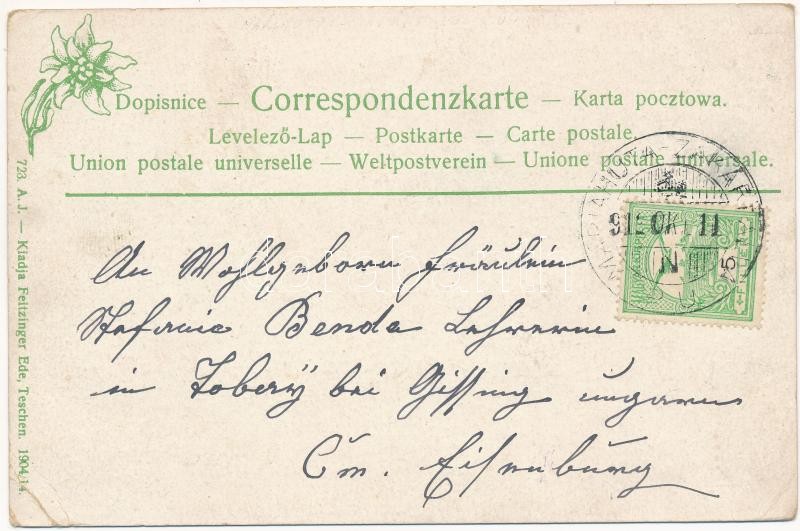 Dopisnice — Correspondenzkarte — Karta pocztowa.
Levelező-Lap — Postkarte — Carte postale.
Union postale universelle — Weltpostverein — Unione postale universale.
912 OKT 11
N
An Wohlgeborn Fräulein
Stefanie Benda Lehrerin
in Tobay bei Gissing ungarn
Cm. Eisenburg
723. A.J. — Kiadja Feitzinger Ede, Teschen. 1904/14.